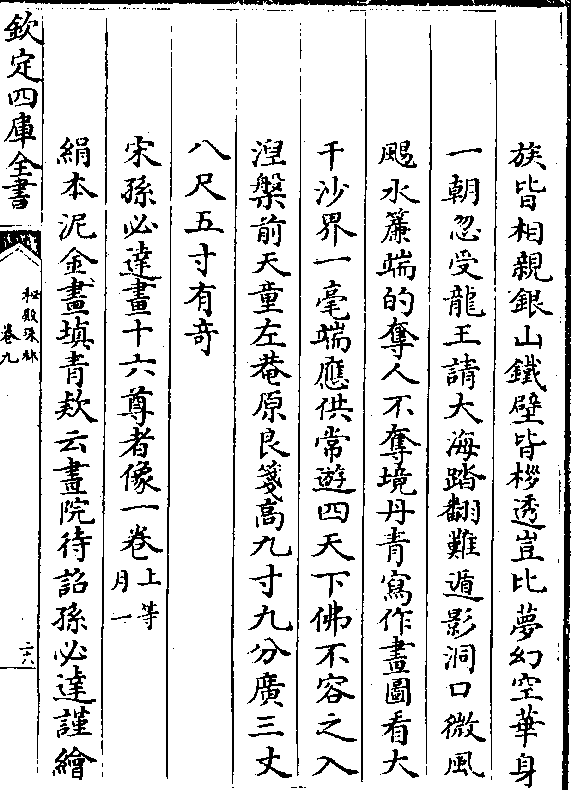 族皆相親銀山鐵壁皆拶透豈比夢幻空華身
一朝忽受龍王請大海踏翻難遁影洞口微風
颺水簾端的奪人不奪境丹青寫作畫圖看大
千沙界一毫端應供常遊四天下佛不容之入
涅槃前天童左菴原良箋高九寸九分廣三丈
八尺五寸有奇
宋孫必達畫十六尊者像一卷上等
月一
絹本泥金畫填青欵云畫院待詔孫必達謹繪
欽定四庫全書
秘殿珠林
卷九
二六